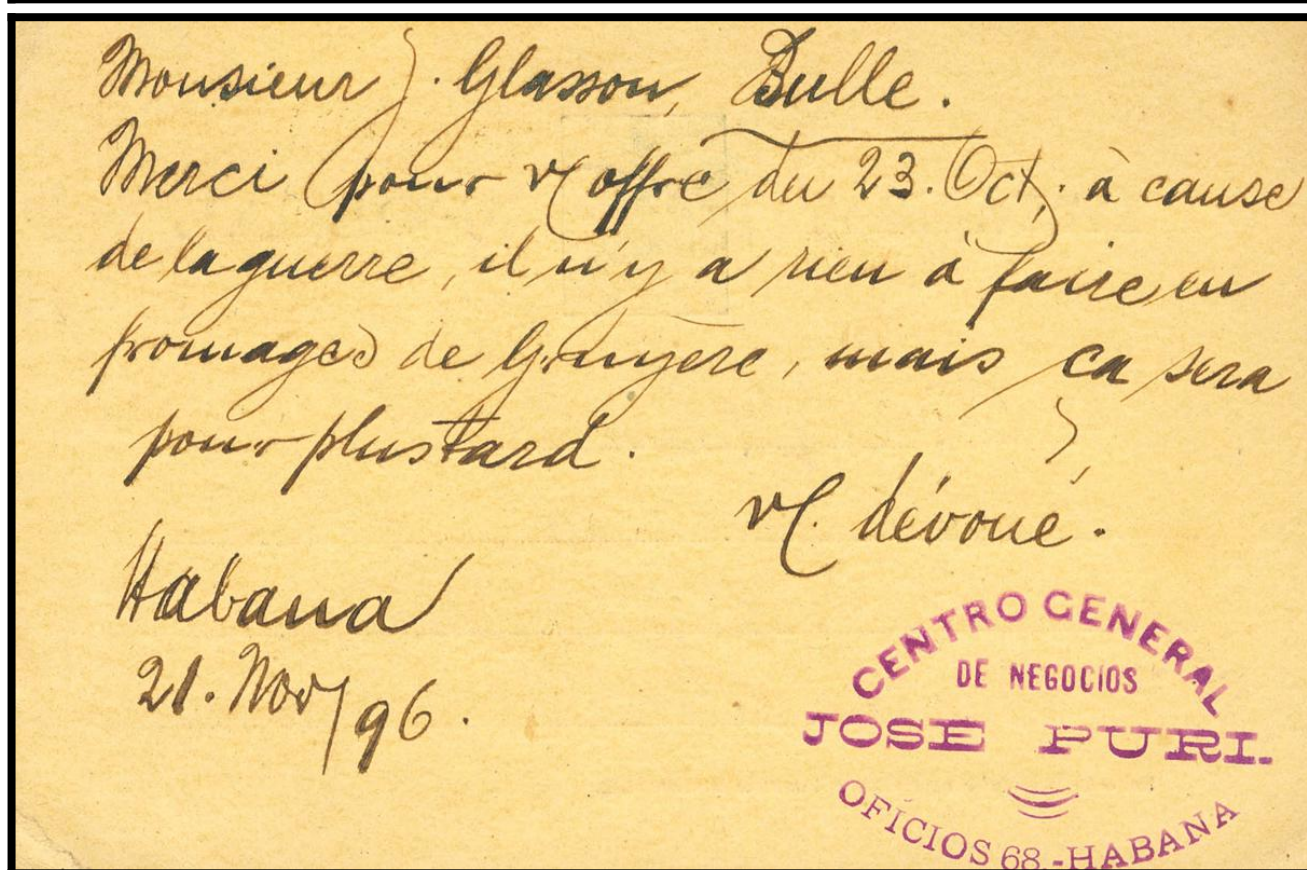 Monsieur J. Glasson, Bulle.
Merci pour v/ offre du 23. Oct, à cause
de la guerre, il n'y a rien à faire en
fromages de Gruyère, mais ça sera
pour plustard.
v/. dévoué.
Habana
21. Nov/96.
CENTRO GENERAL
DE NEGOCIOS
JOSE PURI.
OFICIOS 68.-HABANA